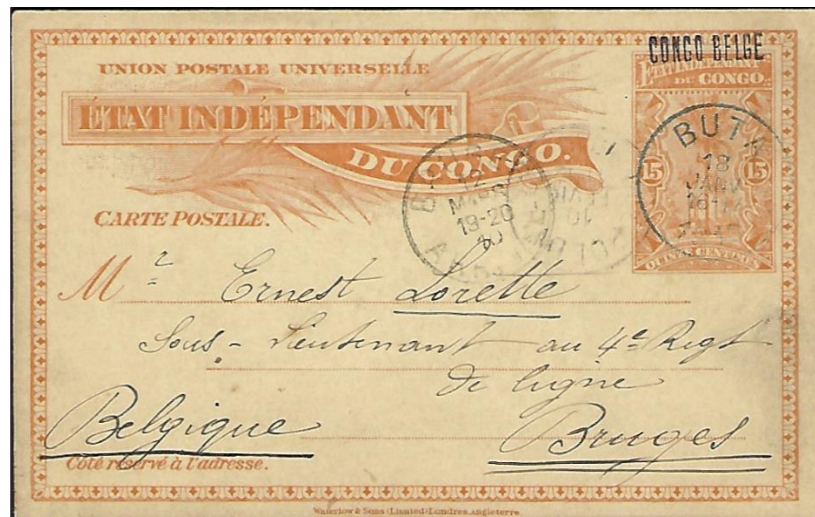 CONGO BELGE
UNION POSTALE UNIVERSELLE
ÉTAT INDÉPENDANT
DU CONGO.
ÉTAT INDÉPENDANT
DU CONGO.
15 15
QUINZE CENTIMES
BUTA
18
JANV
12
MARS
19-20
10
CARTE POSTALE.
Mr Ernest Lorette
Sous-Lieutenant au 4e Regt
de ligne
Belgique
Bruges
Côté réservé à l'adresse.
Waterlow & Sons Limited Londres, Angleterre.